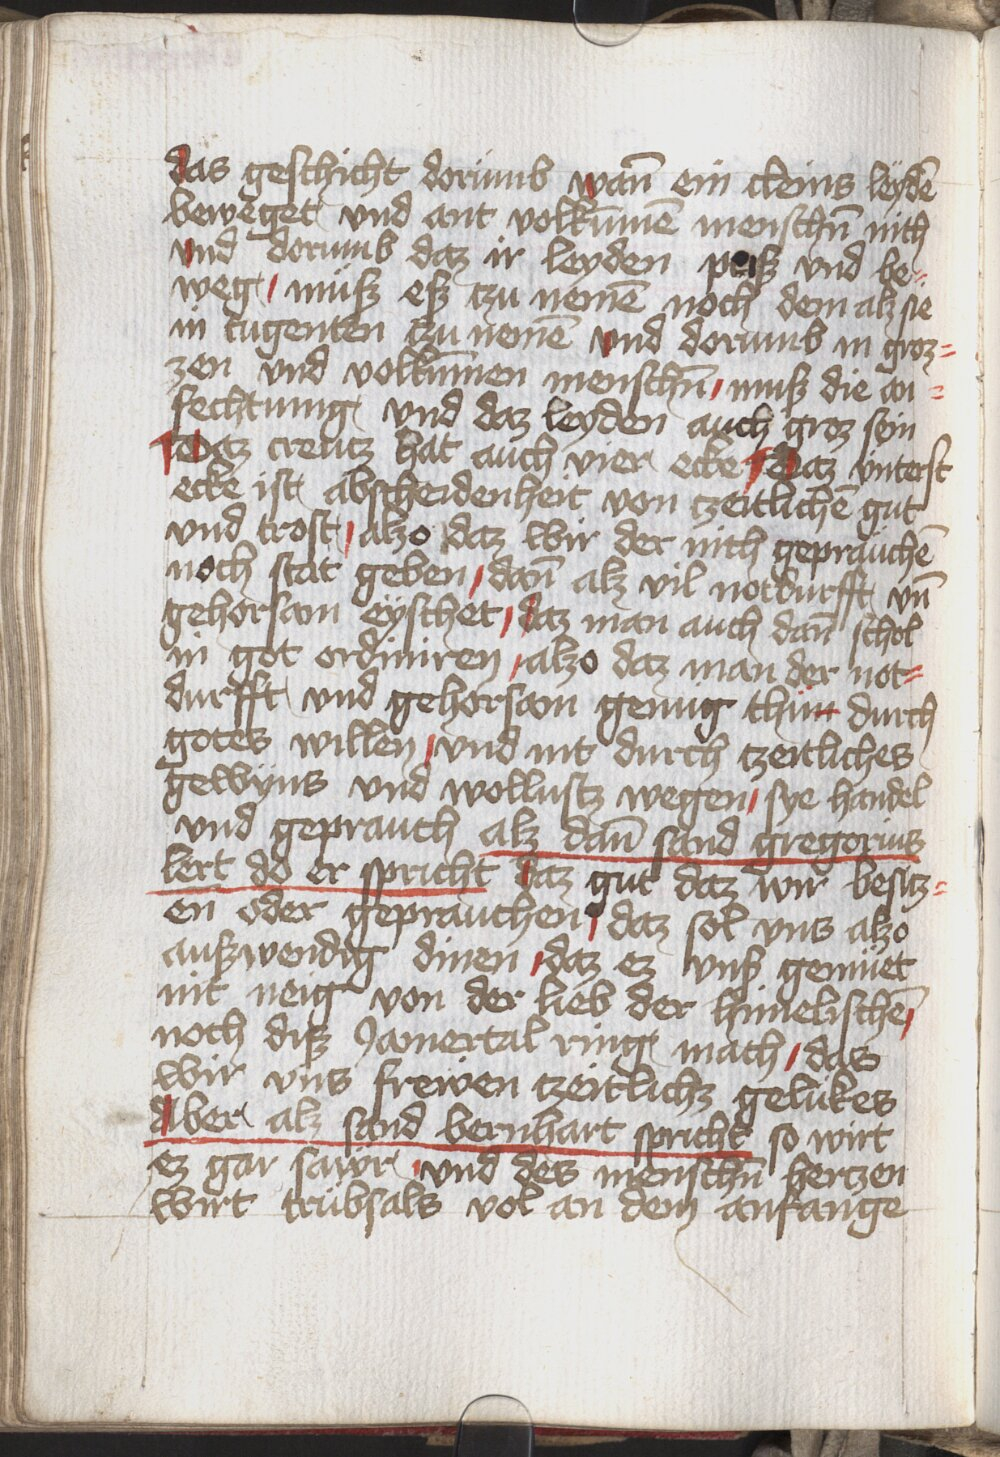 das geschicht dorümb wañ ein cleins leydē
beweget vnd ant volkumē menschñ nich
vnd dorumb daz ir leyden puß vnd be=
weg / müß eß tzu nemē noch dem alz sie
in tugenten tzu nemē vnd dorumb in groz=
zen vnd volkūmen menschñ / muß die an=
fechtung vnd daz leyden auch groz sein
¶ Daz creutz hat auch vier ecke ¶ Daz vnterst
ecke ist abscheidenheit von tzeitlichē gut
vnd trost / alzo daz wir der nich geprauchē
noch stat geben / dañ alz vil notdurfft vñ
gehorsam eyschet / daz man auch dañ schol
in got ordiniren / alzo daz man der not=
durfft vnd gehorsam genug thün durch
gotes willen / vnd nit durch tzeitliches
gewyns vnd wollustz wegen / sye handel
vnd geprauch alz dañ sand gregorius
lert do er spricht daz gut daz wir besitz=
en oder geprauchen / daz sol vns alzo
außwendig dinen / daz ez vnß gemüet
nit neig von der lieb der himelischē /
noch diß Jamertal ring mach / das
wir vns frewen tzeitlichz gelükes
Aber alz sand bernhart spricht so wirt
ez gar sawr / vnd des menschñ hertzen
wirt trübsals vol an dem anfange